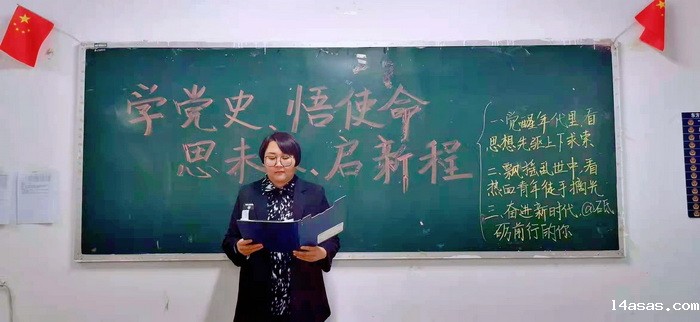 学党史、悟使命
思未、启新程
一、觉醒年代里,看
思想先驱上下求索
二、飘摇乱世中,看
热血青年徒手摘光
三、奋进新时代,@砥
砺前行的你
14asas.com